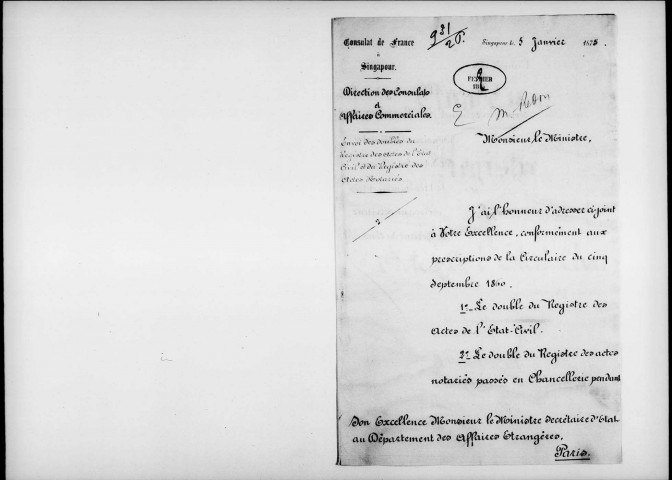 Consulat de France
à
Singapour.
Direction des Consulats
et
Affaires Commerciales.
Envoi des doubles du
Registre des Actes de l'Etat
Civil et du Registre des
Actes Notariés.
2
931/2P.
Singapour le, 5 Janvier 1875.
FEVRIER
E
Monsieur le Ministre,
J'ai l'honneur d'adresser ci-joint
à Votre Excellence, conformément aux
prescriptions de la Circulaire du cinq
Septembre
1º_ Le double du Registre des
Actes de l'Etat-Civil.
2º_ Le double du Registre des actes
notariés passés en Chancellerie pendant
Son Excellence Monsieur le Ministre Secrétaire d'Etat
au Département des Affaires Etrangères,
Paris.